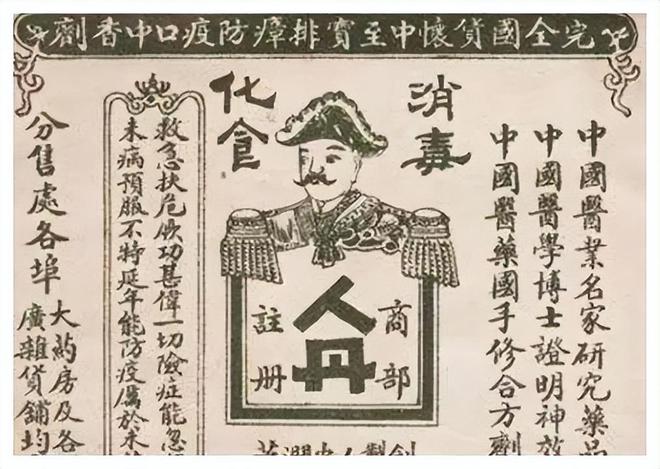 完全國貨懷中至寶排瘴防疫口中香劑
中國醫業名家研究藥品
中國醫學博士證明神放
中國醫藥國手修合方劑
消毒
化食
商部
註冊
人丹
救急扶危欣功甚偉一切險症能急
未病預服不特延年能防疫厲於未
分售處各埠
大药房及各
廣雜貨鋪均